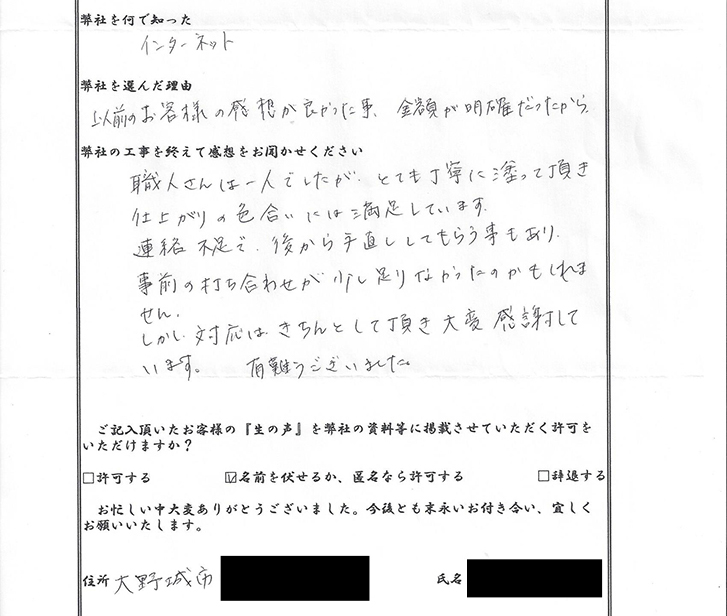 弊社を何で知った
インターネット
弊社を選んだ理由
以前のお客様の感想が良かった事、金額が明確だったから
弊社の工事を終えて感想をお聞かせください
職人さんは一人でしたが、とても丁寧に塗って頂き
仕上がりの色合いには満足しています。
連絡不足で、後から手直ししてもらう事もあり、
事前の打ち合わせが少し足りなかったのかもしれま
せん。
しかし対応はきちんとして頂き大変感謝して
います。 有難うございました。
ご記入頂いたお客様の『生の声』を弊社の資料等に掲載させていただく許可を
いただけますか？
□許可する ☑名前を伏せるか、匿名なら許可する □辞退する
お忙しい中大変ありがとうございました。今後とも末永いお付き合い、宜しく
お願いいたします。
住所 大野城市 氏名